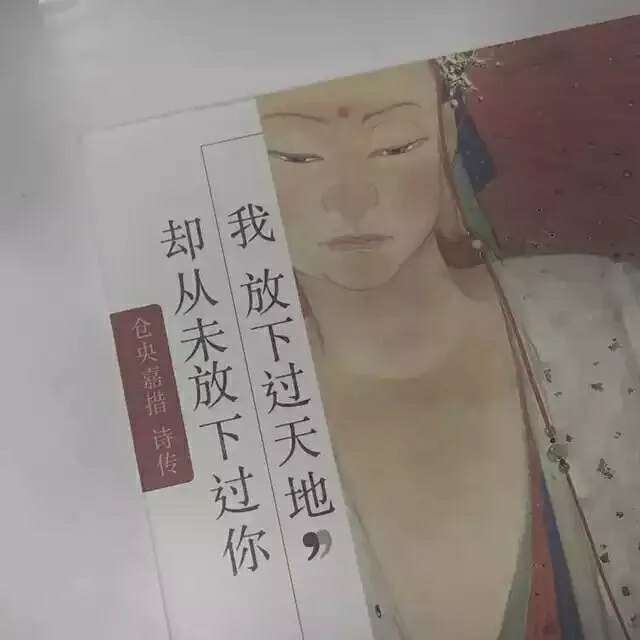 我放下过天地，
却从未放下过你
仓央嘉措 诗传